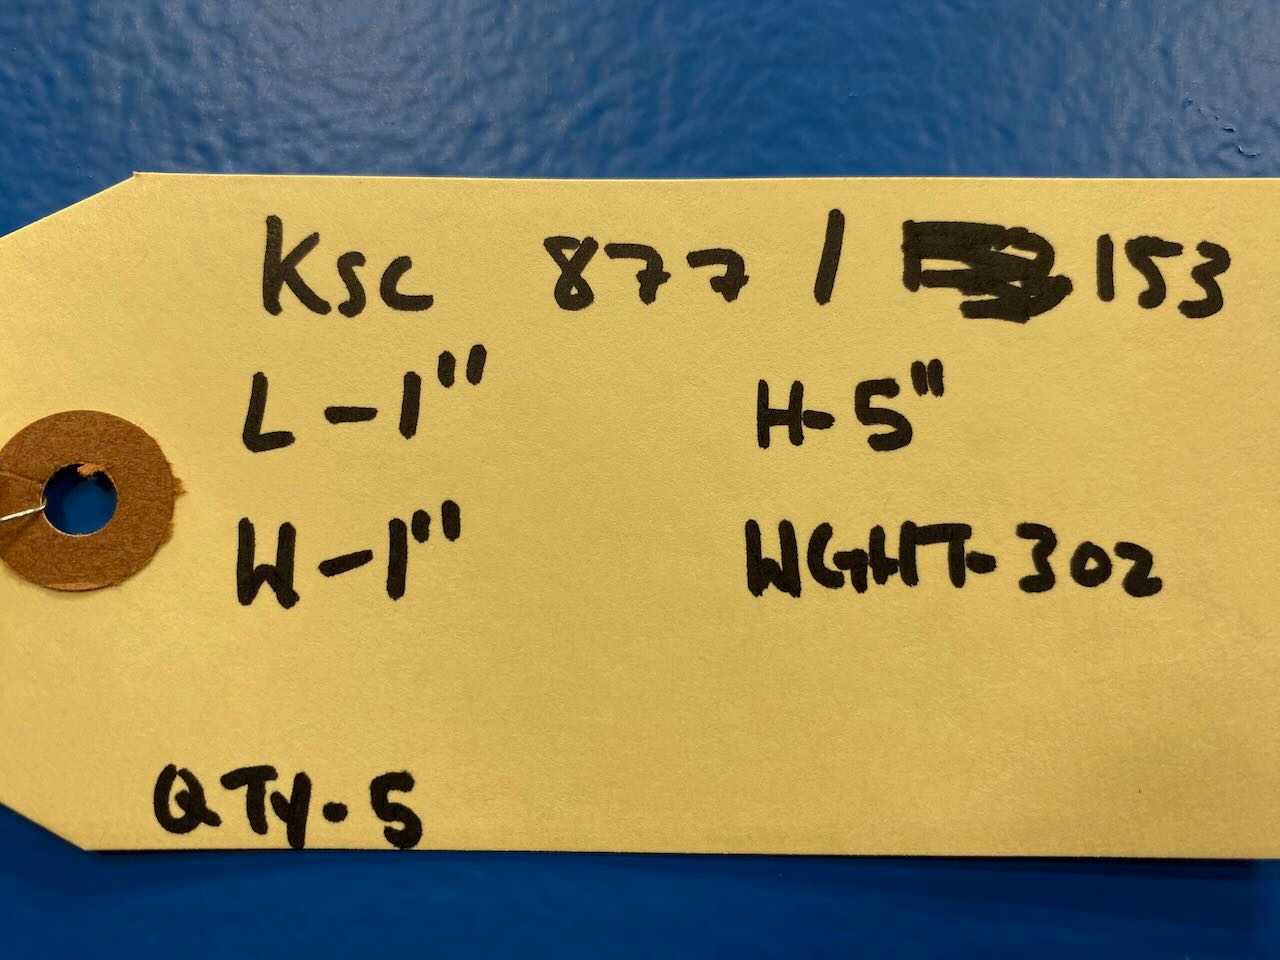 KSC 877 / 153
L-1" H-5"
W-1" WGHT-3oz
QTY-5